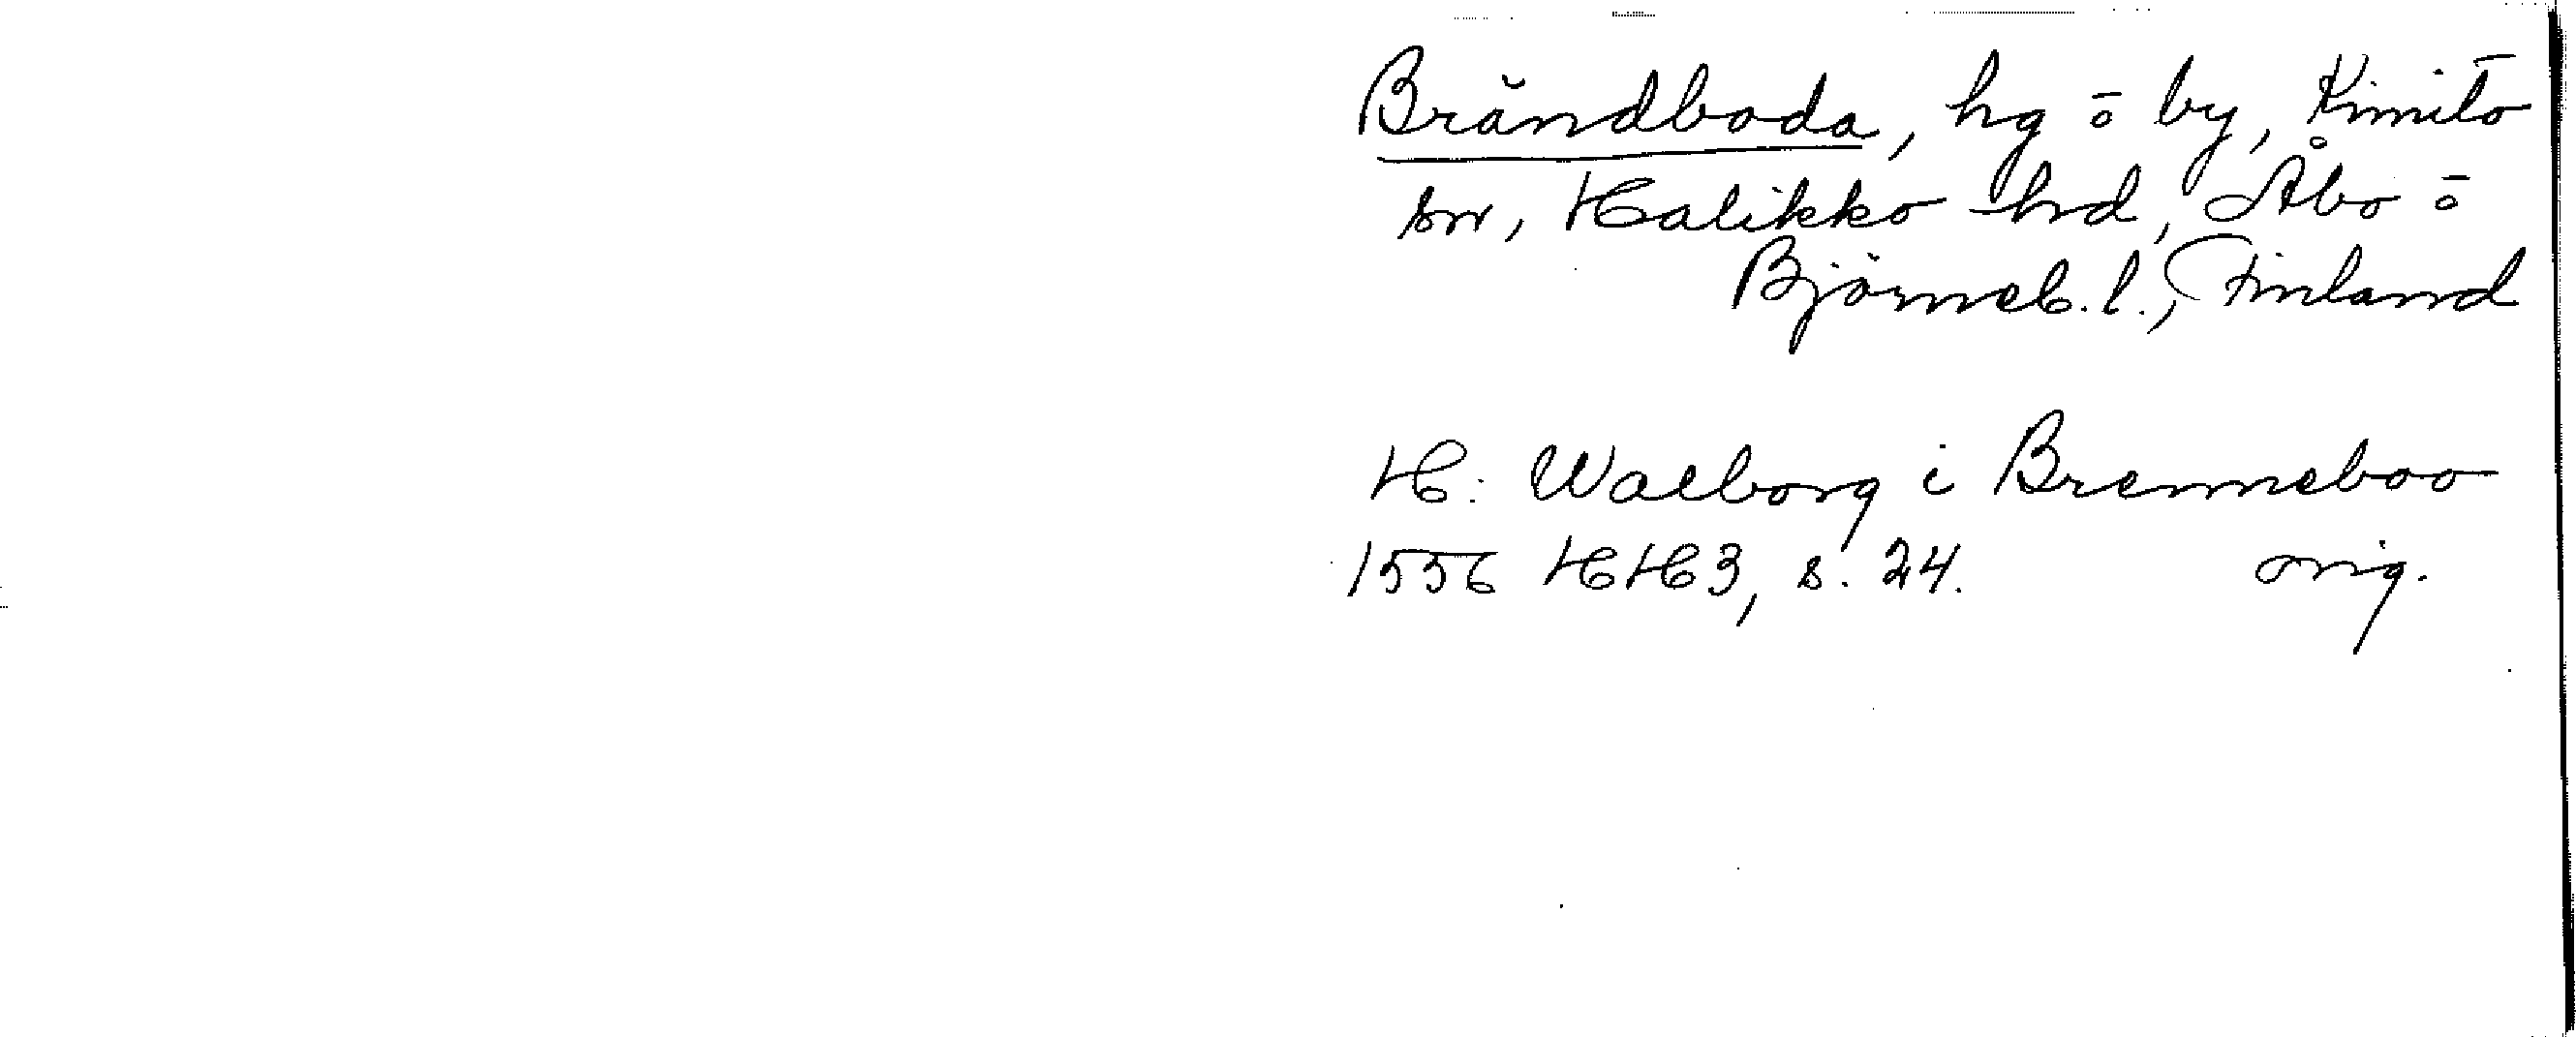 Brändboda, hg o by, Kimito
sn, Halikko hd, Åbo o
Björneb. l., Finland
H: Walborg i Brenneboo
1556 HH3, s. 24. orig.